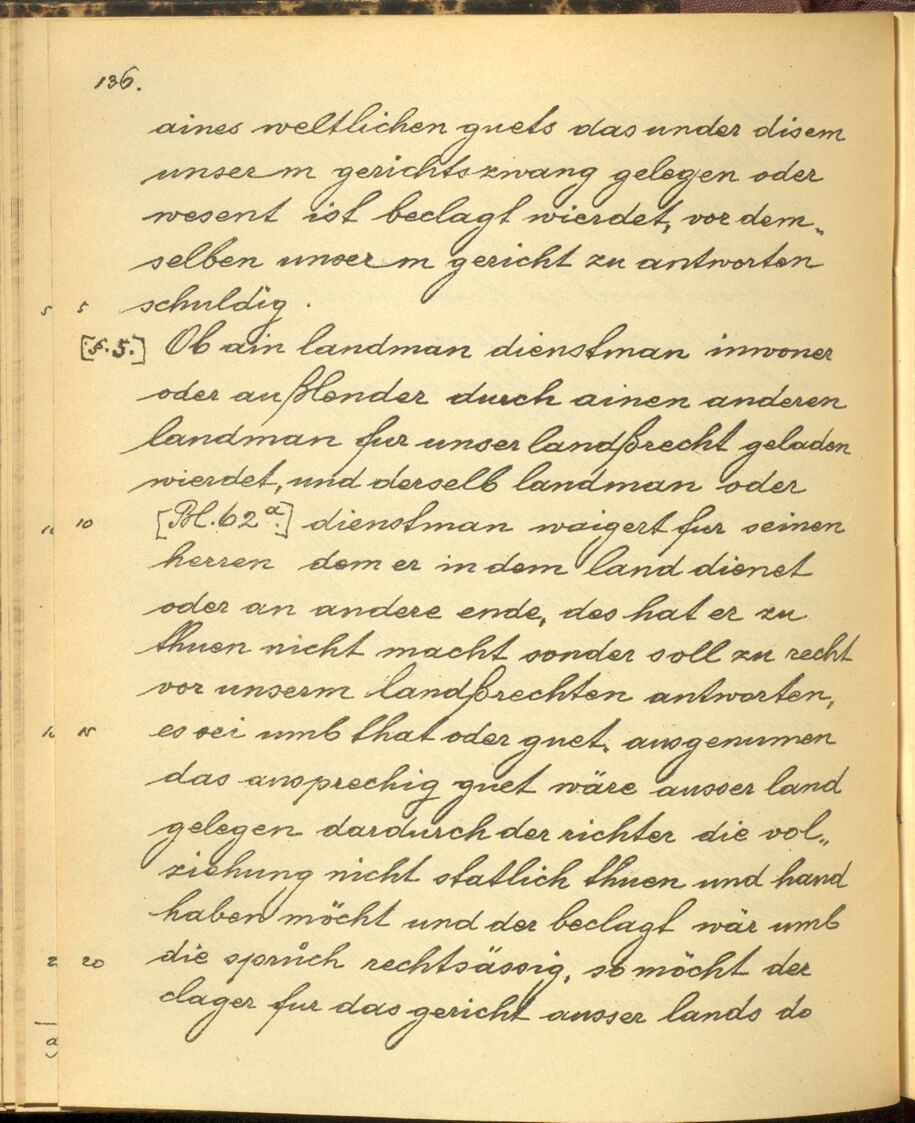 136.
aines weltlichen guets das under disem
unserm gerichtszwang gelegen oder
wesent ist beclagt wierdet, vor dem„
selben unserm gericht zu antworten
5 5 schuldig.
[§. 5.] Ob ain landman dienstman inwoner
oder außlender durch ainen anderen
landman fur unser landßrecht geladen
wierdet, und derselb landman oder
10 [Bl. 62a.] dienstman waigert fur seinen
herren dem er in dem land dienet
oder an andere ende, des hat er zu
thuen nicht macht sonder soll zu recht
vor unserm landßrechten antworten,
15 es sei umb that oder guet. ausgenumen
das ansprechig guet wäre ausser land
gelegen dardurch der richter die vol„
ziehung nicht statlich thuen und hand
haben möcht und der beclagt wär umb
2 20 die sprůch rechtsässig, so möcht der
clager fur das gericht ausser lands do